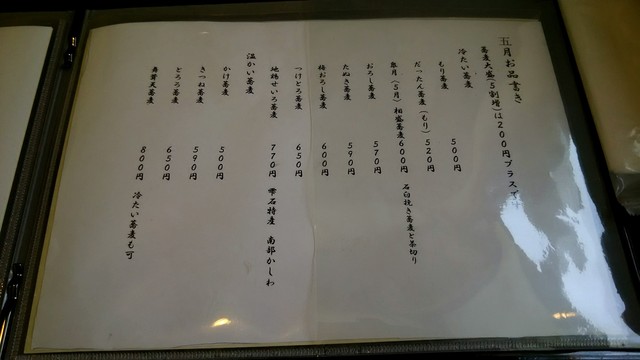 五月お品書き
蕎麦大盛(5割増)は200円プラスです
冷たい蕎麦
もり蕎麦 500円
だったん蕎麦(もり) 520円
皐月(5月)相盛蕎麦600円 石臼挽き蕎麦と茶切り
おろし蕎麦 570円
たぬき蕎麦 590円
梅おろし蕎麦 600円
つけとろ蕎麦 650円
地鶏せいろ蕎麦 770円 雫石特産 南部かしわ
温かい蕎麦
かけ蕎麦 500円
きつね蕎麦 590円
とろろ蕎麦 650円
舞茸天蕎麦 800円 冷たい蕎麦も可